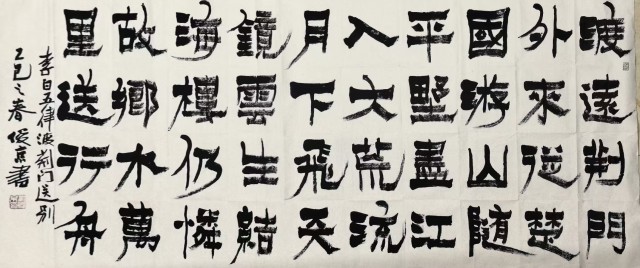 渡遠荆門
外來從楚
國游山隨
平墅盡江
入大荒流
月下飛天
鏡雲生結
海樓仍憐
故鄉水萬
里送行舟
李白五律渡荆门送别
乙巳之春俊京書